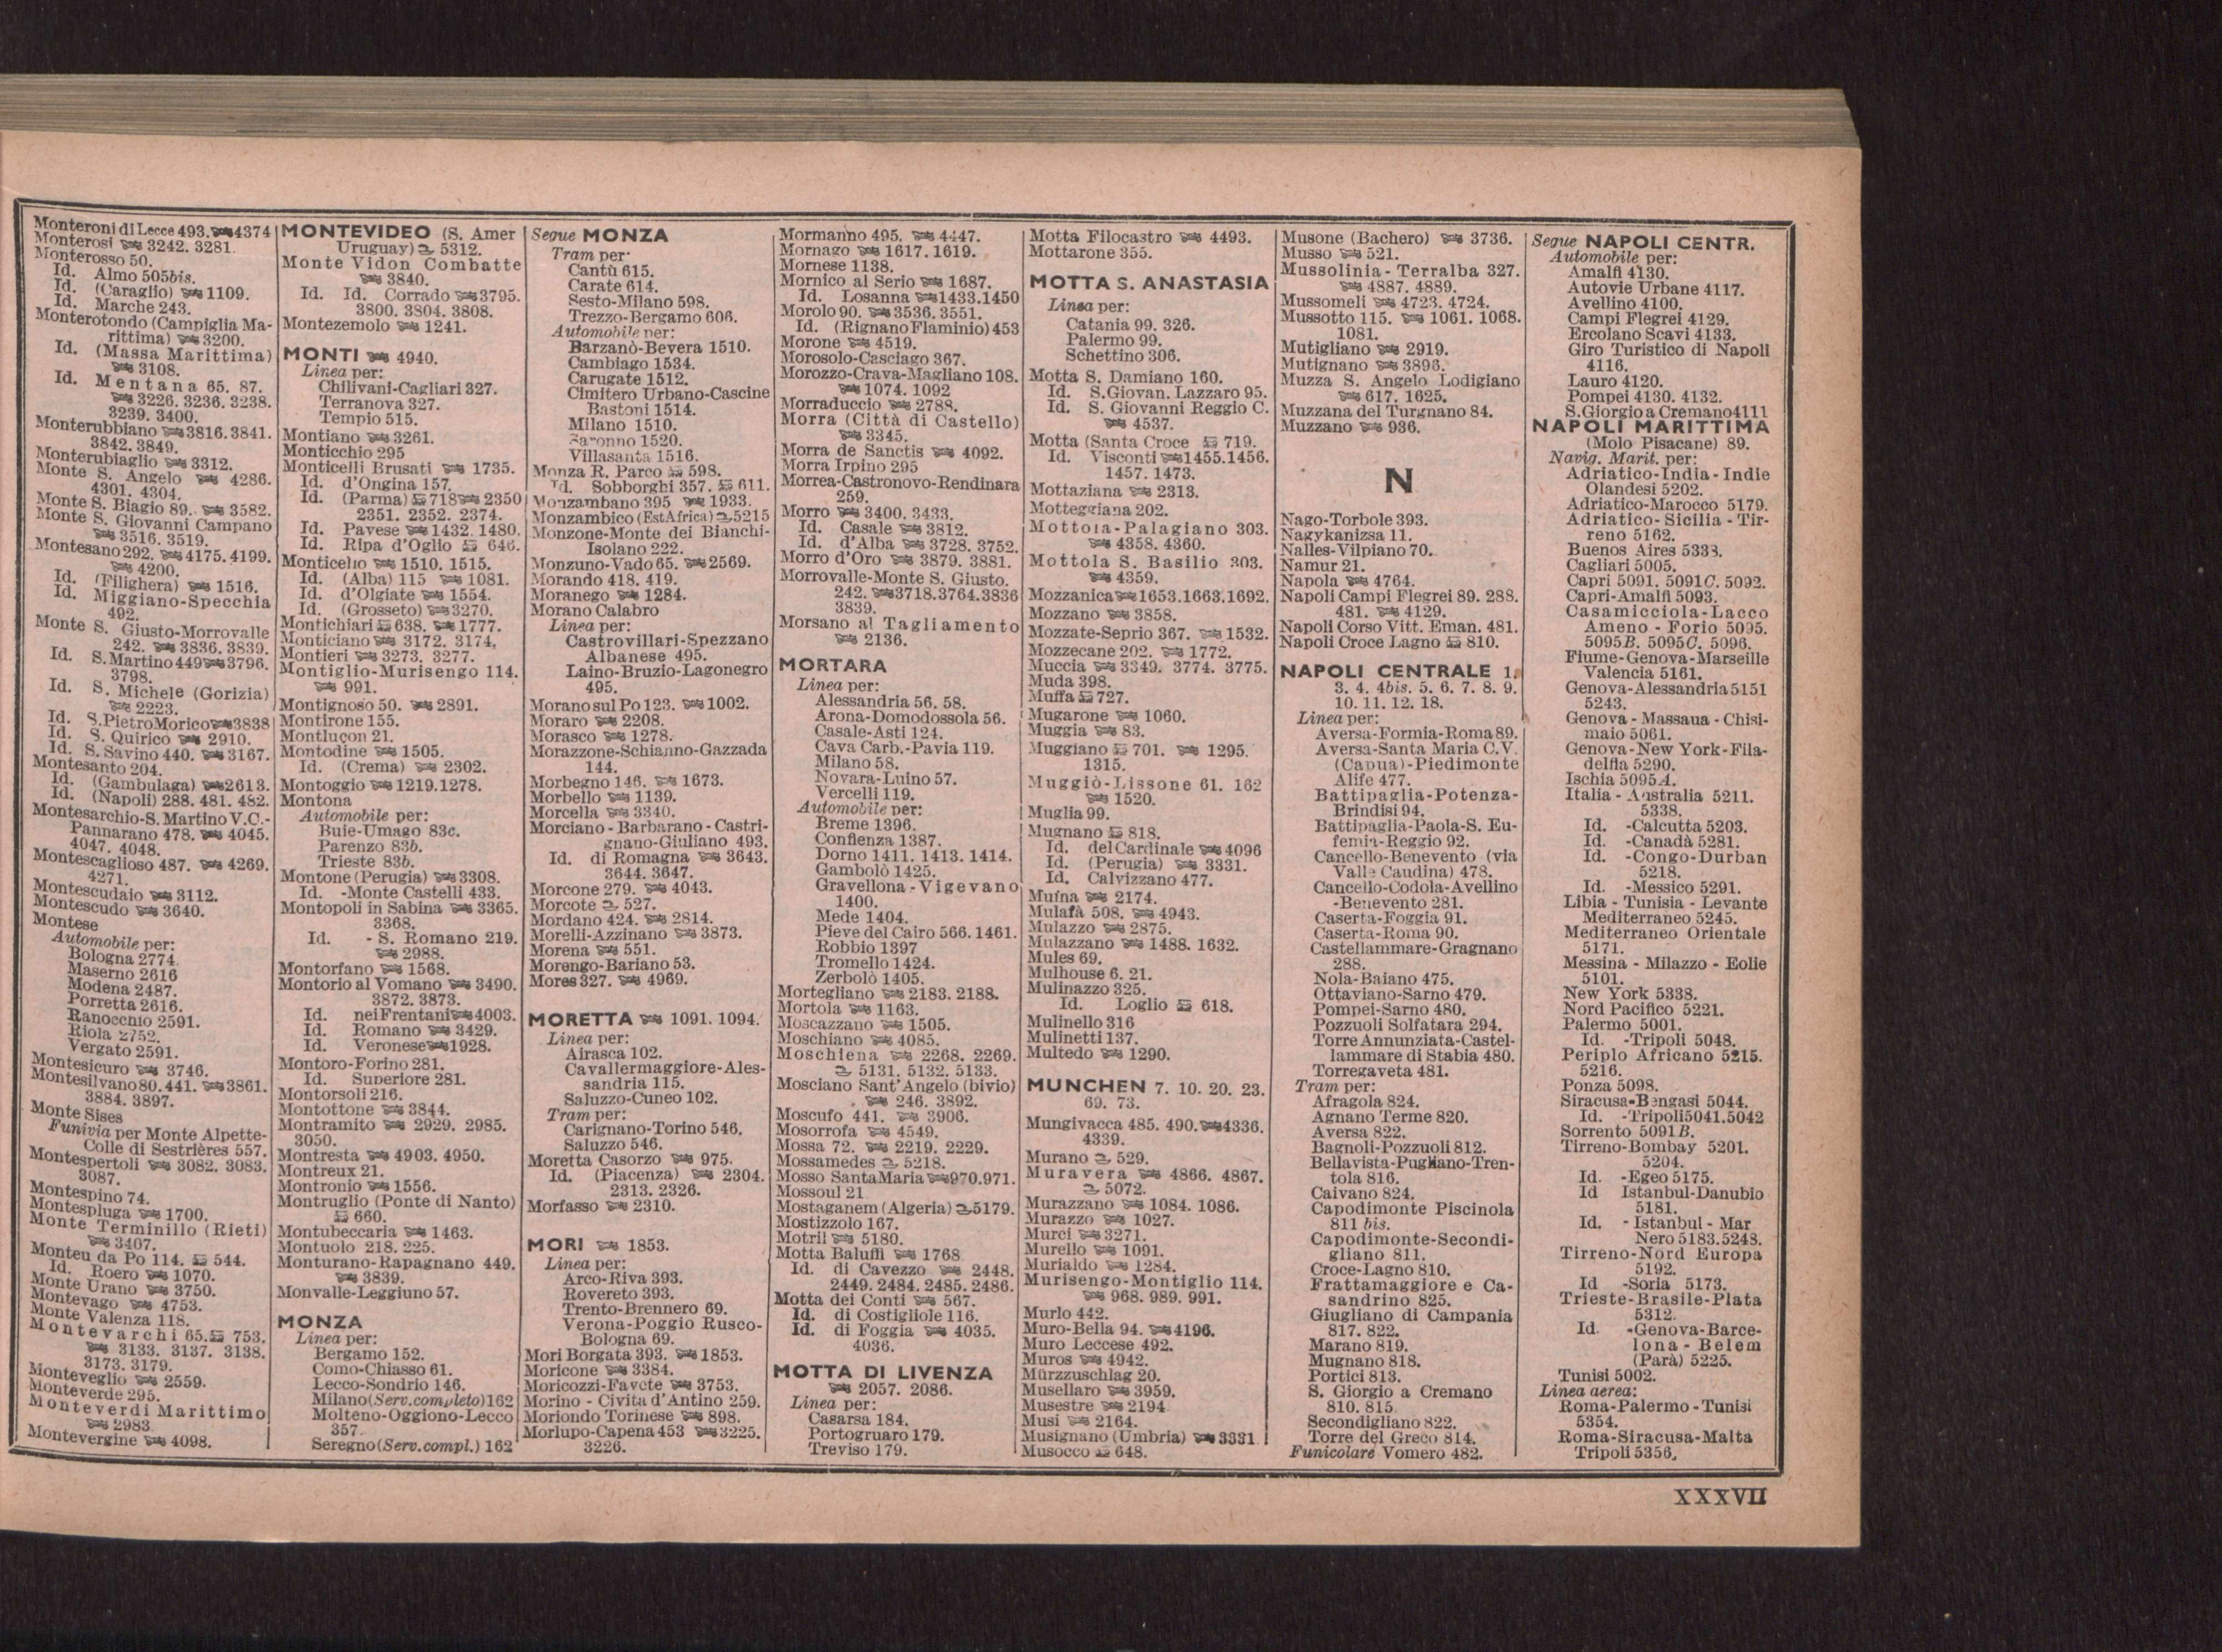 Monteroni di Lecce 493. 4374
Monterosi 3242. 3281.
Monterosso 50.
Id. Almo 505bis.
Id. (Caraglio) 1109.
Id. Marche 243.
Monterotondo (Campiglia Ma-
rittima) 3200.
Id. (Massa Marittima)
3108.
Id. Mentana 65. 87.
3226. 3236. 3238.
3239. 3400.
Monterubbiano 3816. 3841.
3842. 3849.
Monterubiaglio 3312.
Monte S. Angelo 4286.
4301. 4304.
Monte S. Biagio 89. 3582.
Monte S. Giovanni Campano
3516. 3519.
Montesano 292. 4175. 4199.
4200.
Id. (Filighera) 1516.
Id. Miggiano-Specchia
492.
Monte S. Giusto-Morrovalle
242. 3836. 3839.
Id. S. Martino 449 3796.
3798.
Id. S. Michele (Gorizia)
2223.
Id. S. Pietro Morico 3838
Id. S. Quirico 2910.
Id. S. Savino 440. 3167.
Montesanto 204.
Id. (Gambulaga) 2613.
Id. (Napoli) 288. 481. 482.
Montesarchio-S. Martino V.C.-
Pannarano 478. 4045.
4047. 4048.
Montescaglioso 487. 4269.
4271.
Montescudaio 3112.
Montescudo 3640.
Montese
Automobile per:
Bologna 2774
Maserno 2616
Modena 2487.
Porretta 2616.
Ranocchio 2591.
Riola 2752.
Vergato 2591.
Montesicuro 3746.
Montesilvano 80. 441. 3861.
3884. 3897.
Monte Sises
Funivia per Monte Alpette-
Colle di Sestrières 557.
Montespertoli 3082. 3083.
3087.
Montespino 74.
Montespluga 1700.
Monte Terminillo (Rieti)
3407.
Monteu da Po 114. 544.
Id. Roero 1070.
Monte Urano 3750.
Montevago 4753.
Monte Valenza 118.
Montevarchi 65. 753.
3133. 3137. 3138.
3173. 3179.
Monteveglio 2559.
Monteverde 295.
Monteverdi Marittimo
2983
Montevergine 4098.
MONTEVIDEO (S. Amer
Uruguay) 5312.
Monte Vidon Combatte
3840.
Id. Id. Corrado 3795.
3800. 3804. 3808.
Montezemolo 1241.
MONTI 4940.
Linea per:
Chilivani-Cagliari 327.
Terranova 327.
Tempio 515.
Montiano 3261.
Monticchio 295
Monticelli Brusati 1735.
Id. d'Ongina 157.
Id. (Parma) 718 2350
2351. 2352. 2374.
Id. Pavese 1432. 1480.
Id. Ripa d'Oglio 646.
Monticello 1510. 1515.
Id. (Alba) 115 1081.
Id. d'Olgiate 1554.
Id. (Grosseto) 3270.
Montichiari 638. 1777.
Monticiano 3172. 3174.
Montieri 3273. 3277.
Montiglio-Murisengo 114.
991.
Montignoso 50. 2891.
Montirone 155.
Montluçon 21.
Montodine 1505.
Id. (Crema) 2302.
Montoggio 1219. 1278.
Montona
Automobile per:
Buie-Umago 83c.
Parenzo 83b.
Trieste 83b.
Montone (Perugia) 3308.
Id. -Monte Castelli 433.
Montopoli in Sabina 3365.
3368.
Id. - S. Romano 219.
2988.
Montorfano 1568.
Montorio al Vomano 3490.
3872. 3873.
Id. nei Frentani 4003.
Id. Romano 3429.
Id. Veronese 1928.
Montoro-Forino 281.
Id. Superiore 281.
Montorsoli 216.
Montottone 3844.
Montramito 2929. 2985.
3050.
Montresta 4903. 4950.
Montreux 21.
Montronio 1556.
Montruglio (Ponte di Nanto)
660.
Montubeccaria 1463.
Montuolo 218. 225.
Monturano-Rapagnano 449.
3839.
Monvalle-Leggiuno 57.
MONZA
Linea per:
Bergamo 152.
Como-Chiasso 61.
Lecco-Sondrio 146.
Milano (Serv. completo) 162
Molteno-Oggiono-Lecco
357.
Seregno (Serv. compl.) 162
Segue MONZA
Tram per:
Cantù 615.
Carate 614.
Sesto-Milano 598.
Trezzo-Bergamo 606.
Automobile per:
Barzanò-Bevera 1510.
Cambiago 1534.
Carugate 1512.
Cimitero Urbano-Cascine
Bastoni 1514.
Milano 1510.
Saronno 1520.
Villasanta 1516.
Monza R. Parco 598.
Id. Sobborghi 357. 611.
Monzambano 395 1933.
Monzambico (Est Africa) 5215
Monzone-Monte dei Bianchi-
Isolano 222.
Monzuno-Vado 65. 2569.
Morando 418. 419.
Moranego 1284.
Morano Calabro
Linea per:
Castrovillari-Spezzano
Albanese 495.
Laino-Bruzio-Lagonegro
495.
Morano sul Po 123. 1002.
Moraro 2208.
Morasco 1278.
Morazzone-Schianno-Gazzada
144.
Morbegno 146. 1673.
Morbello 1139.
Morcella 3340.
Morciano - Barbarano - Castri-
gnano-Giuliano 493.
Id. di Romagna 3643.
3644. 3647.
Morcone 279. 4043.
Morcote 527.
Mordano 424. 2814.
Morelli-Azzinano 3873.
Morena 551.
Morengo-Bariano 53.
Mores 327. 4969.
MORETTA 1091. 1094.
Linea per:
Airasca 102.
Cavallermaggiore-Ales-
sandria 115.
Saluzzo-Cuneo 102.
Tram per:
Carignano-Torino 546.
Saluzzo 546.
Moretta Casorzo 975.
Id. (Piacenza) 2304.
2313. 2326.
Morfasso 2310.
MORI 1853.
Linea per:
Arco-Riva 393.
Rovereto 393.
Trento-Brennero 69.
Verona-Poggio Rusco-
Bologna 69.
Mori Borgata 393. 1853.
Moricone 3384.
Moricozzi-Favete 3753.
Morino - Civita d'Antino 259.
Moriondo Torinese 898.
Morlupo-Capena 453 3225.
3226.
Mormanno 495. 4447.
Mornago 1617. 1619.
Mornese 1138.
Mornico al Serio 1687.
Id. Losanna 1433. 1450
Morolo 90. 3536. 3551.
Id. (Rignano Flaminio) 453
Morone 4519.
Morosolo-Casciago 367.
Morozzo-Crava-Magliano 108.
1074. 1092
Morraduccio 2788.
Morra (Città di Castello)
3345.
Morra de Sanctis 4092.
Morra Irpino 295
Morrea-Castronovo-Rendinara
259.
Morro 3400. 3433.
Id. Casale 3812.
Id. d'Alba 3728. 3752.
Morro d'Oro 3879. 3881.
Morrovalle-Monte S. Giusto.
242. 3718. 3764. 3836
3839.
Morsano al Tagliamento
2136.
MORTARA
Linea per:
Alessandria 56. 58.
Arona-Domodossola 56.
Casale-Asti 124.
Cava Carb.-Pavia 119.
Milano 58.
Novara-Luino 57.
Vercelli 119.
Automobile per:
Breme 1396.
Confienza 1387.
Dorno 1411. 1413. 1414.
Gambolò 1425.
Gravellona - Vigevano
1400.
Mede 1404.
Pieve del Cairo 566. 1461.
Robbio 1397
Tromello 1424.
Zerbolò 1405.
Mortegliano 2183. 2188.
Mortola 1163.
Moscazzano 1505.
Moschiano 4085.
Moschiena 2268. 2269.
5131. 5132. 5133.
Mosciano Sant'Angelo (bivio)
246. 3892.
Moscufo 441. 3906.
Mosorrofa 4549.
Mossa 72. 2219. 2229.
Mossamedes 5218.
Mosso Santa Maria 970. 971.
Mossoul 21
Mostaganem (Algeria) 5179.
Mostizzolo 167.
Motril 5180.
Motta Baluffi 1768
Id. di Cavezzo 2448.
2449. 2484. 2485. 2486.
Motta dei Conti 567.
Id. di Costigliole 116.
Id. di Foggia 4035.
4036.
MOTTA DI LIVENZA
2057. 2086.
Linea per:
Casarsa 184.
Portogruaro 179.
Treviso 179.
Motta Filocastro 4493.
Mottarone 355.
MOTTA S. ANASTASIA
Linea per:
Catania 99. 326.
Palermo 99.
Schettino 306.
Motta S. Damiano 160.
Id. S. Giovan. Lazzaro 95.
Id. S. Giovanni Reggio C.
4537.
Motta (Santa Croce 719.
Id. Visconti 1455. 1456.
1457. 1473.
Mottaziana 2313.
Motteggiana 202.
Mottola-Palagiano 303.
4358. 4360.
Mottola S. Basilio 303.
4359.
Mozzanica 1653. 1663. 1692.
Mozzano 3858.
Mozzate-Seprio 367. 1532.
Mozzecane 202. 1772.
Muccia 3349. 3774. 3775.
Muda 398.
Muffa 727.
Mugarone 1060.
Muggia 83.
Muggiano 701. 1295.
1315.
Muggiò-Lissone 61. 162
1520.
Muglia 99.
Mugnano 818.
Id. del Cardinale 4096
Id. (Perugia) 3331.
Id. Calvizzano 477.
Muina 2174.
Mulafà 508. 4943.
Mulazzo 2875.
Mulazzano 1488. 1632.
Mules 69.
Mulhouse 6. 21.
Mulinazzo 325.
Id. Loglio 618.
Mulinello 316
Mulinetti 137.
Multedo 1290.
MUNCHEN 7. 10. 20. 23.
69. 73.
Mungivacca 485. 490. 4336.
4339.
Murano 529.
Muravera 4866. 4867.
5072.
Murazzano 1084. 1086.
Murazzo 1027.
Murci 3271.
Murello 1091.
Murialdo 1284.
Murisengo-Montiglio 114.
968. 989. 991.
Murlo 442.
Muro-Bella 94. 4196.
Muro Leccese 492.
Muros 4942.
Mürzzuschlag 20.
Musellaro 3959.
Musestre 2194
Musi 2164.
Musignano (Umbria) 3331
Musocco 648.
Musone (Bachero) 3736.
Musso 521.
Mussolinia - Terralba 327.
4887. 4889.
Mussomeli 4723. 4724.
Mussotto 115. 1061. 1068.
1081.
Mutigliano 2919.
Mutignano 3896.
Muzza S. Angelo Lodigiano
617. 1625.
Muzzana del Turgnano 84.
Muzzano 936.
N
Nago-Torbole 393.
Nagykanizsa 11.
Nalles-Vilpiano 70.
Namur 21.
Napola 4764.
Napoli Campi Flegrei 89. 288.
481. 4129.
Napoli Corso Vitt. Eman. 481.
Napoli Croce Lagno 810.
NAPOLI CENTRALE 1.
3. 4. 4bis. 5. 6. 7. 8. 9.
10. 11. 12. 18.
Linea per:
Aversa-Formia-Roma 89.
Aversa-Santa Maria C.V.
(Capua)-Piedimonte
Alife 477.
Battipaglia-Potenza-
Brindisi 94.
Battipaglia-Paola-S. Eu-
femia-Reggio 92.
Cancello-Benevento (via
Valle Caudina) 478.
Cancello-Codola-Avellino
-Benevento 281.
Caserta-Foggia 91.
Caserta-Roma 90.
Castellammare-Gragnano
288.
Nola-Baiano 475.
Ottaviano-Sarno 479.
Pompei-Sarno 480.
Pozzuoli Solfatara 294.
Torre Annunziata-Castel-
lammare di Stabia 480.
Torregaveta 481.
Tram per:
Afragola 824.
Agnano Terme 820.
Aversa 822.
Bagnoli-Pozzuoli 812.
Bellavista-Pugliano-Tren-
tola 816.
Caivano 824.
Capodimonte Piscinola
811 bis.
Capodimonte-Secondi-
gliano 811.
Croce-Lagno 810.
Frattamaggiore e Ca-
sandrino 825.
Giugliano di Campania
817. 822.
Marano 819.
Mugnano 818.
Portici 813.
S. Giorgio a Cremano
810. 815.
Secondigliano 822.
Torre del Greco 814.
Funicolare Vomero 482.
Segue NAPOLI CENTR.
Automobile per:
Amalfi 4130.
Autovie Urbane 4117.
Avellino 4100.
Campi Flegrei 4129.
Ercolano Scavi 4133.
Giro Turistico di Napoli
4116.
Lauro 4120.
Pompei 4130. 4132.
S. Giorgio a Cremano 4111
NAPOLI MARITTIMA
(Molo Pisacane) 89.
Navig. Marit. per:
Adriatico-India-Indie
Olandesi 5202.
Adriatico-Marocco 5179.
Adriatico-Sicilia - Tir-
reno 5162.
Buenos Aires 5333.
Cagliari 5005.
Capri 5091. 5091C. 5092.
Capri-Amalfi 5093.
Casamicciola-Lacco
Ameno - Forio 5095.
5095B. 5095C. 5096.
Fiume-Genova-Marseille
Valencia 5161.
Genova-Alessandria 5151
5243.
Genova - Massaua - Chisi-
maio 5061.
Genova-New York-Fila-
delfia 5290.
Ischia 5095A.
Italia - Australia 5211.
5338.
Id. -Calcutta 5203.
Id. -Canadà 5281.
Id. -Congo-Durban
5218.
Id. -Messico 5291.
Libia - Tunisia - Levante
Mediterraneo 5245.
Mediterraneo Orientale
5171.
Messina - Milazzo - Eolie
5101.
New York 5338.
Nord Pacifico 5221.
Palermo 5001.
Id. -Tripoli 5048.
Periplo Africano 5215.
5216.
Ponza 5098.
Siracusa-Bengasi 5044.
Id. -Tripoli 5041. 5042
Sorrento 5091B.
Tirreno-Bombay 5201.
5204.
Id. -Egeo 5175.
Id Istanbul-Danubio
5181.
Id. - Istanbul - Mar
Nero 5183. 5248.
Tirreno-Nord Europa
5192.
Id -Soria 5173.
Trieste-Brasile-Plata
5312.
Id. -Genova-Barce-
lona - Belem
(Parà) 5225.
Tunisi 5002.
Linea aerea:
Roma-Palermo - Tunisi
5354.
Roma-Siracusa-Malta
Tripoli 5356.
XXXVII